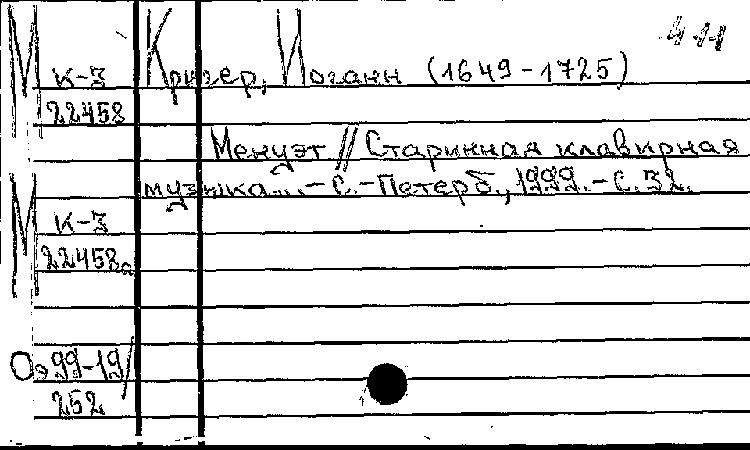 М К-3 Кригер, Иоганн (1649-1725)
22458
Менуэт // Старинная клавирная
музыка... - С.-Петерб., 1999. - С. 32.
М К-3
22458а
Оэ 99-19/
252